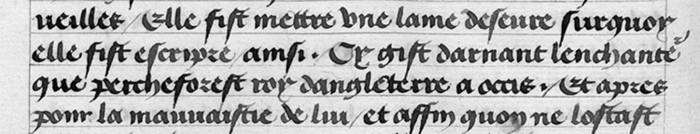 ueilles / Elle fist mettre vne lame deseure surquoy
elle fist escripre ainsi . Cy gist darnant lenchante²
que percheforest roy dangleterre a occis . Et apres
pour la mauuaistie de lui / et affin quon ne lostast